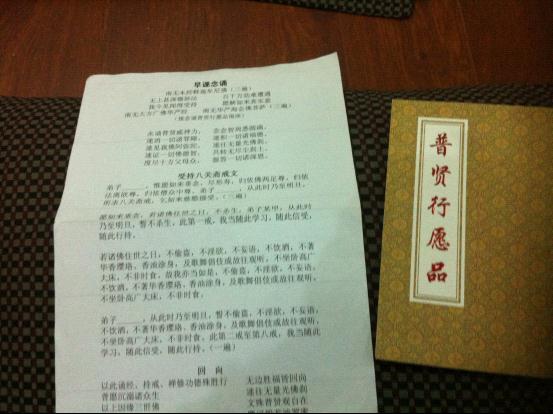 早课念诵
南无本师释迦牟尼佛（三遍）
无上甚深微妙法 百千万劫难遭遇
我今见闻得受持 愿解如来真实义
南无大方广佛华严经 南无华严海会佛菩萨（三遍）
永诵普贤威神力，
速消一切诸罪障， 速积一切诸福德，
速见我佛阿弥陀， 速往无量光佛刹，
速证一切佛
度尽十方父母众， 报答一切诸深恩。
受持八关斋戒文
弟子＿＿＿，惟愿如来垂念，尽形寿，归依佛两足尊，归依
法离欲尊，归依僧众中尊，弟子＿＿＿，从此时乃至明旦，
所求八关斋戒，乞如来慈愍摄受。（三遍）
愿如来垂哀，若诸佛住世之日，不杀生，弟子某甲，从此时
乃至明旦，誓不杀生，此第一戒，我当随此学习，随此信受，
随此行持。
若诸佛住世之日，不偷盗，不淫欲，不妄语，不饮酒，不著
华香璎珞、香油涂身，及歌舞倡伎或故往观听，不坐卧高广
大床，不非时食，故我亦当如是，不偷盗，不淫欲，不妄语，
不饮酒，不著华香璎珞、香油涂身，及歌舞倡伎或故往观听，
不坐卧高广大床，不非时食，
弟子＿＿＿，从此时乃至明旦，誓不偷盗，不淫欲，不妄语，
不饮酒，不著华香璎珞、香油涂身，及歌舞倡伎或故往观听，
不坐卧高广大床，不非时食，此第二戒至第八戒，我当随此
学习，随此信受，随此行持。（一遍）
回 向
以此诵经、持戒、禅修功德殊胜行 无边胜福皆回向
普愿沉溺诸众生 速往无量光佛刹
文殊普贤观自在
普贤行愿品